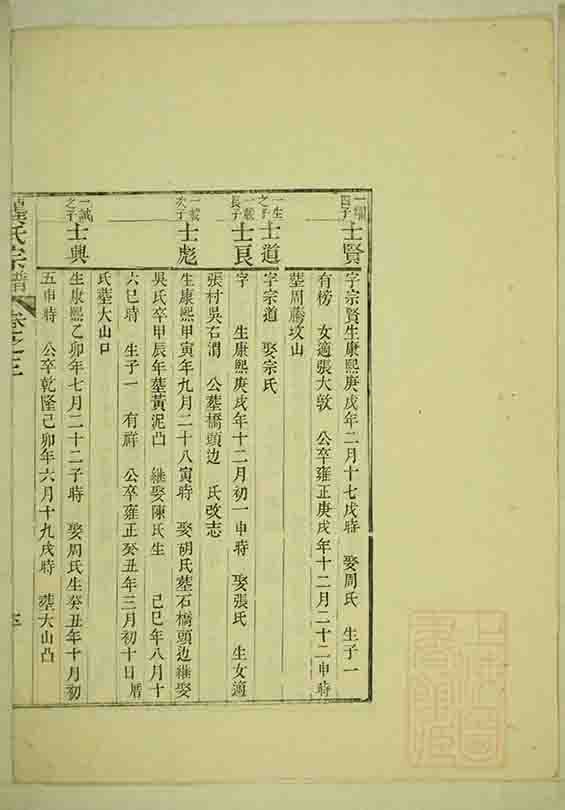 士賢 字宗賢生康熙庚戌年二月十七戌時 娶周氏 生子一
有榜 女適張大敦 公卒雍正庚戌年十二月二十二申時
塟周蕩坟山
一生之子 士道 字宗道 娶宗氏
一載長子 士良 字 生康熙庚戌年十二月初一申時 娶張氏 生女適
張村吳石渭 公塟橋頭邊 氏改志
一載次子 士彪 生康熙甲寅年九月二十八寅時 娶胡氏塟石橋頭邊継娶
吳氏卒甲辰年塟黃泥凸 継娶陳氏生 己巳年八月十
六巳時 生子一 有祥 公卒雍正癸丑年三月初十日厝
氏塟大山口
一誠之子 士興 生康熙乙卯年七月二十二子時 娶周氏生癸丑年十月初
五申時 公卒乾隆己卯年六月十九戌時 塟大山凸
氏宗譜 卷之三